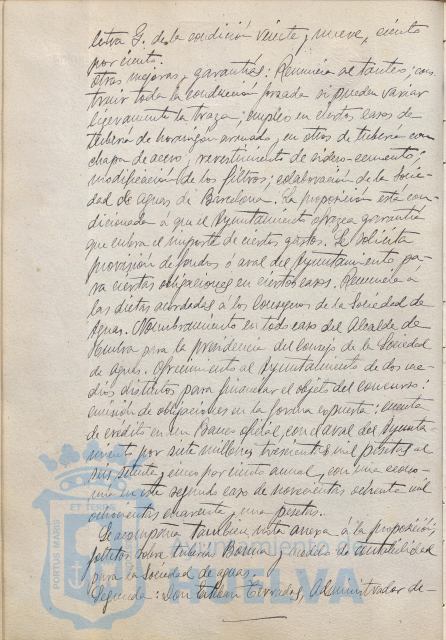 letra G. de la condición veinte y nueve, ciento
por ciento.
Otras mejoras y garantías: Renuncia al tanteo; cons-
truir toda la conducción forzada si pueden variar
ligeramente la traza; empleo en ciertos casos de
tubería de hormigón armado, en otros de tubería con
chapa de acero, revestimiento de sidero-cemento;
modificación de los filtros; colaboración de la Socie-
dad de aguas de Barcelona. La proposición está con-
dicionada á que el Ayuntamiento ofrezca garantía
que cubra el importe de ciertos gastos. Se solicita
provisión de fondos ó aval del Ayuntamiento pa-
ra ciertas obligaciones en ciertos casos. Renuncia a
las dietas acordadas a los Consejeros de la Sociedad de
Aguas. Nombramiento en todo caso del Alcalde de
Huelva para la presidencia del Consejo de la Sociedad
de aguas. Ofrecimiento al Ayuntamiento de dos me-
dios distintos para financiar el objeto del concurso:
emisión de obligaciones en la forma expuesta: cuenta
de crédito en un Banco oficial, con el aval del Ayunta-
miento por siete millones trescientas mil pesetas al
seis setenta y cinco por ciento anual, con una econo-
mía en este segundo caso de novecientas ochenta mil
ochocientas cuarenta y una pesetas.
Se acompaña también, nota anexa á la proposición,
folletos sobre tubería Bonna y medios de
para la Sociedad de aguas.
Segunda: Don Esteban Terradas, Administrador de-
PORTUS MARIS
ET TERRAE
Ayuntamiento de
HUELVA